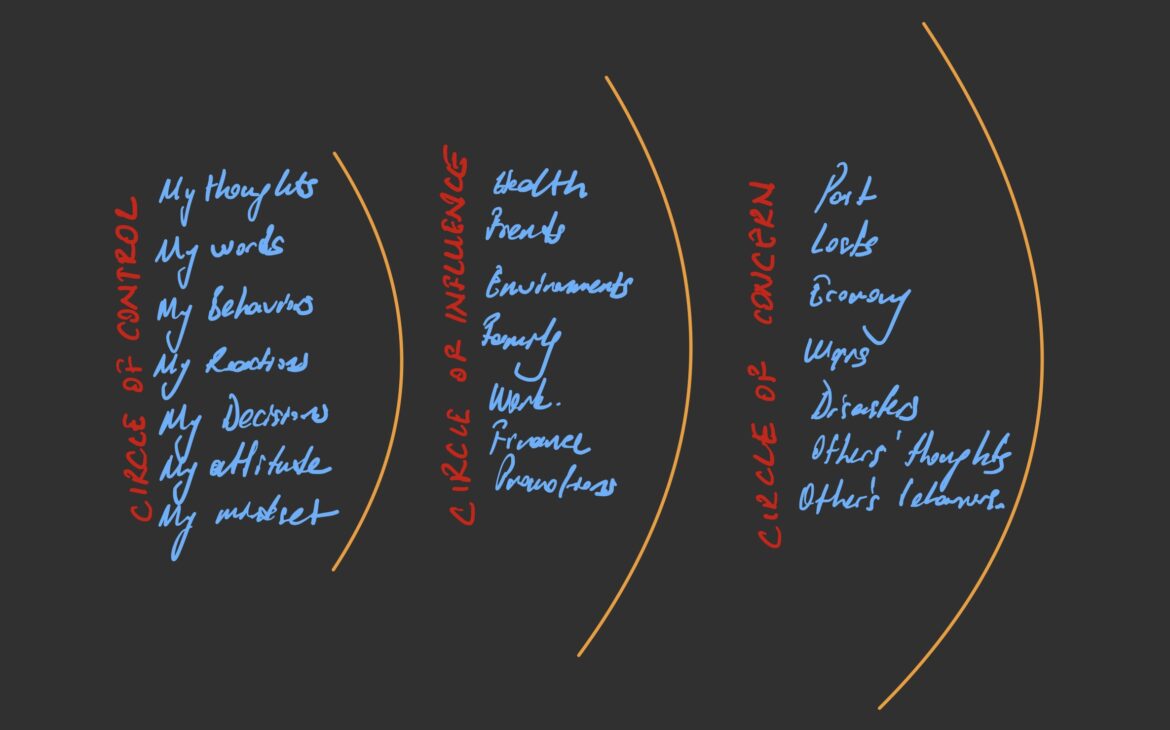 CIRCLE OF CONTROL
My thoughts
My words
My Behaviors
My Reactions
My Decisions
My attitude
My mindset
CIRCLE OF INFLUENCE
Health
Frends
Environments
Family
Work.
Finance
CIRCLE OF CONCERN
Past
Losts
Economy
Disasters
Others' thoughts
Other's behaviors.